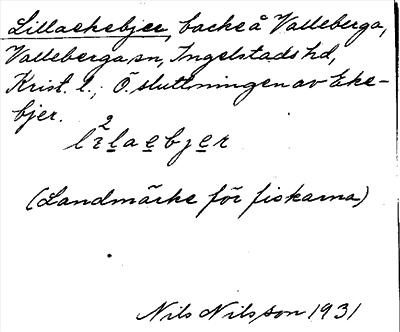 Lillaekebjer, backe å Valleberga,
Valleberga sn, Ingelstads hd,
Krist. l.; Ö. sluttningen av Eke-
bjer.
(Landmärke för fiskarna)
Nils Nilsson 1931